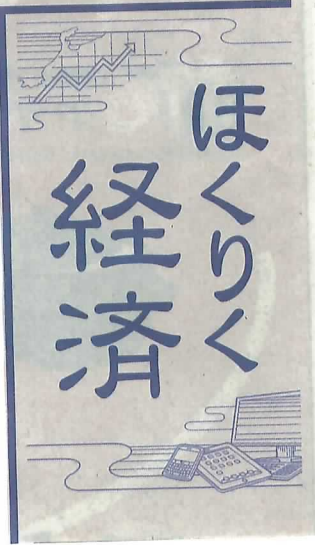 ほくりく
経済